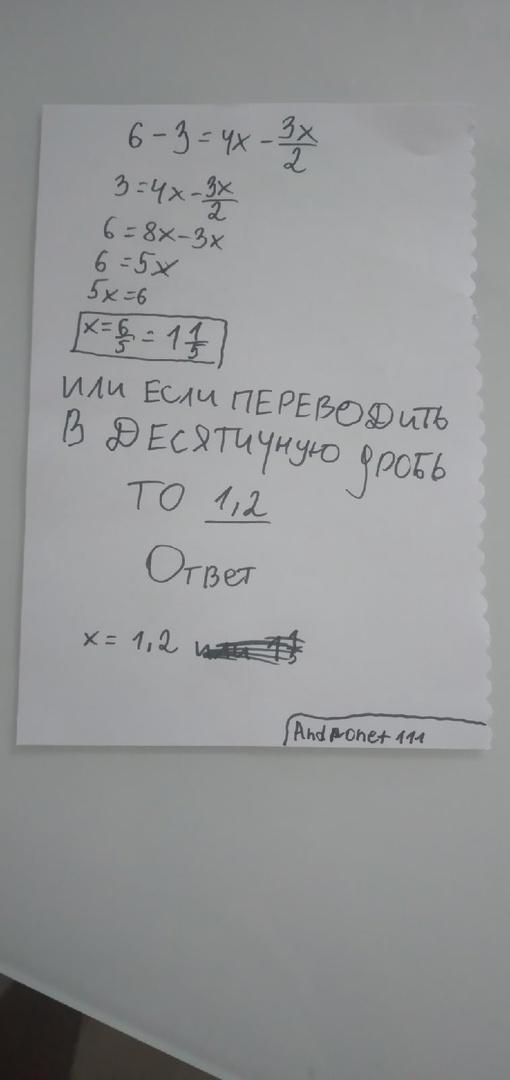 6 - 3 = 4x - 3x/2
3 = 4x - 3x/2
6 = 8x - 3x
6 = 5x
5x = 6
x = 6/5 = 1 1/5
ИЛИ ЕСЛИ ПЕРЕВОДИТЬ
В ДЕСЯТИЧНУЮ ДРОБЬ
ТО 1,2
Ответ
x = 1,2
Andronet 111